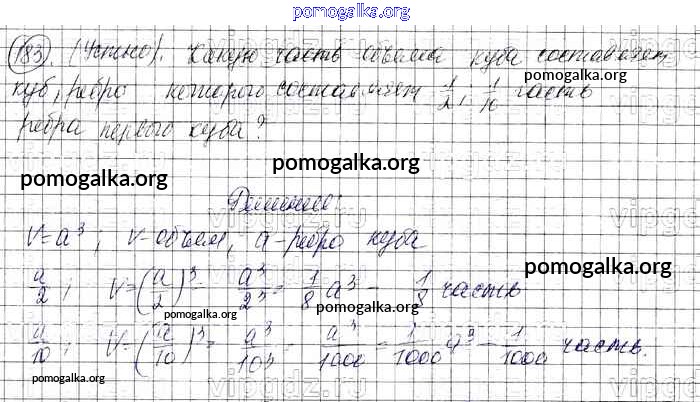 pomogalka.org
183. (Устно). Какую часть объема куба составляет
pomogalka.org
куб, ребро которого составляет 1/2, 1/10 часть
ребра первого куба?
pomogalka.org
pomogalka.org
Решение:
vipgdz.ru
V=a³; V-объем, a-ребро куба
pomogalka.org
a/2; V=(a/2)³= a³/2³= 1/8 a³ - 1/8 часть
pomogalka.org
a/10; V=(a/10)³= a³/10³= a³/1000 = 1/1000 a³ - 1/1000 часть.
pomogalka.org
pomogalka.org
vipgdz.ru